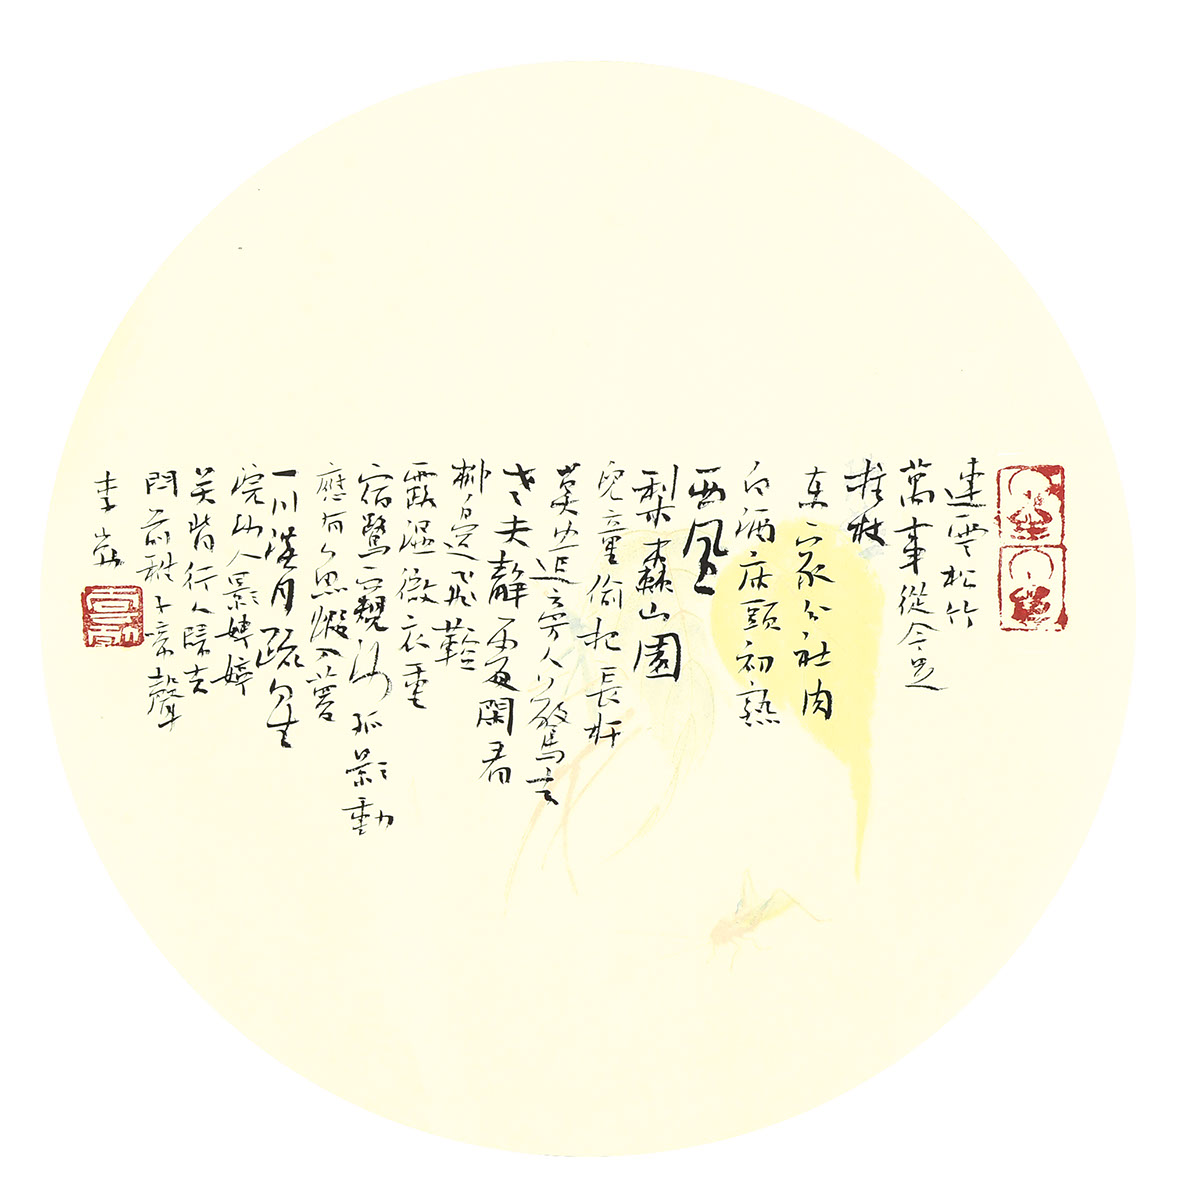 連雲松竹
萬事從今足
拄杖
東家分社肉
白酒床頭初熟
西風
梨棗山園
兒童偷把長杆
莫遣旁人驚去
老夫靜處閑看
柳邊飛鞚
露濕徵衣重
宿鷺窺沙孤影動
應有魚蝦入夢
一川淡月疏星
浣紗人影娉婷
笑背行人歸去
門前稚子啼聲